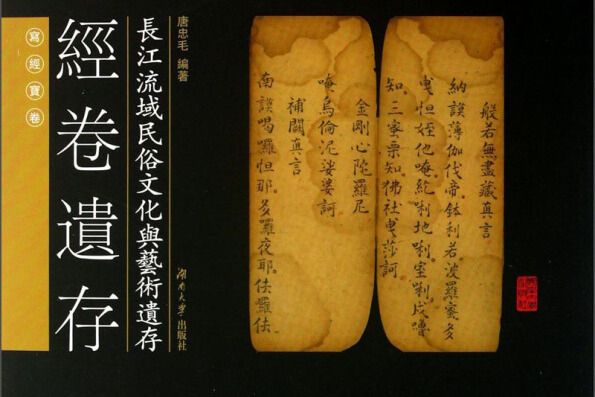 寫經寶卷
經卷遺存
長江流域民俗文化與藝術遺存
唐忠毛 編著
湖南大學出版社
般若無盡藏真言
納謨薄伽伐帝。鉢利若。波羅蜜多
曳怛姪他唵紇唎地唎室唎戍嚕
知。三蜜栗知。佛社曳莎訶
金剛心陀羅尼
唵烏倫泥娑婆訶
補闕真言
南謨喝囉怛那。多羅夜耶。佉羅佉。